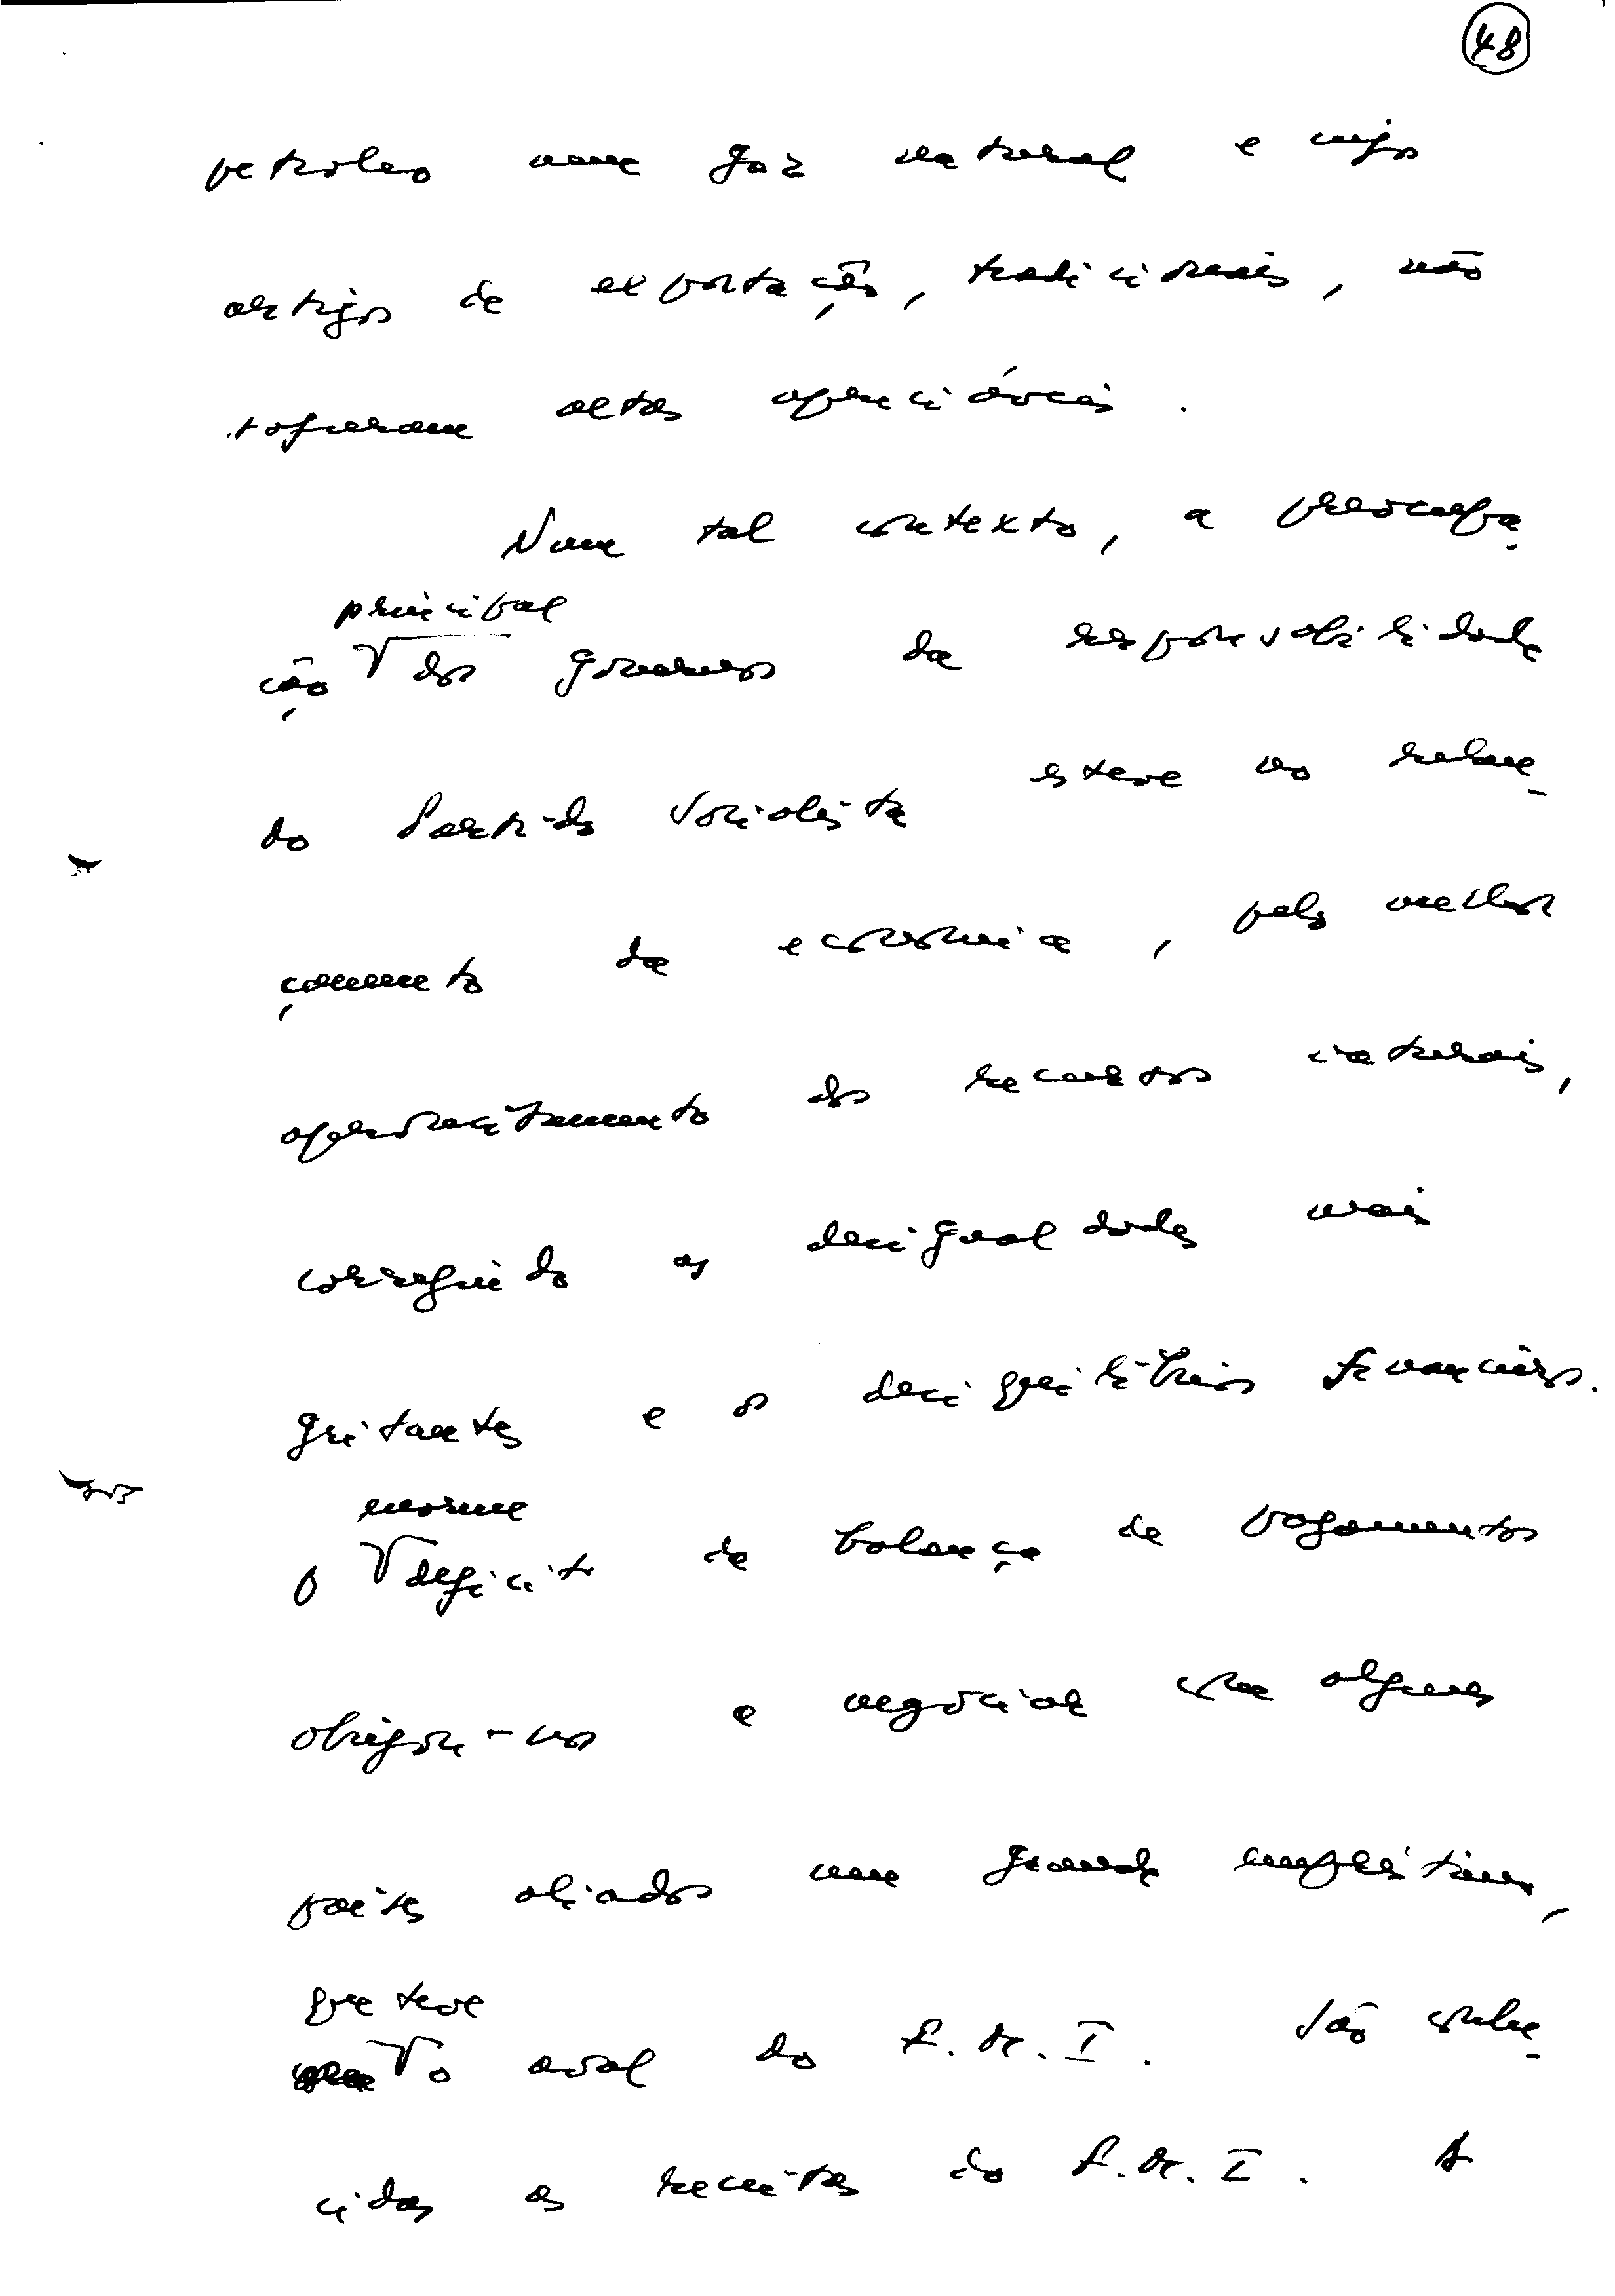 48
petroleo nem gaz natural e cujos
artigos de exportação, tradicionais, não
sofreram altas apreciáveis.
Num tal contexto, a preocupa-
principal
ção dos governos da responsabilidade
do Partido Socialista esteve no relan-
çamento da economia, pelo melhor
aproveitamento dos recursos naturais,
corrigindo as desigualdades mais
gritantes e os desiquilíbrios financeiros.
enorme
O deficit da balança de pagamentos
obrigou-nos a negociar com alguns
países aliados um grande empréstimo,
que teve
o aval do F.M.I. São conhe-
cidas as receitas do F.M.I. A